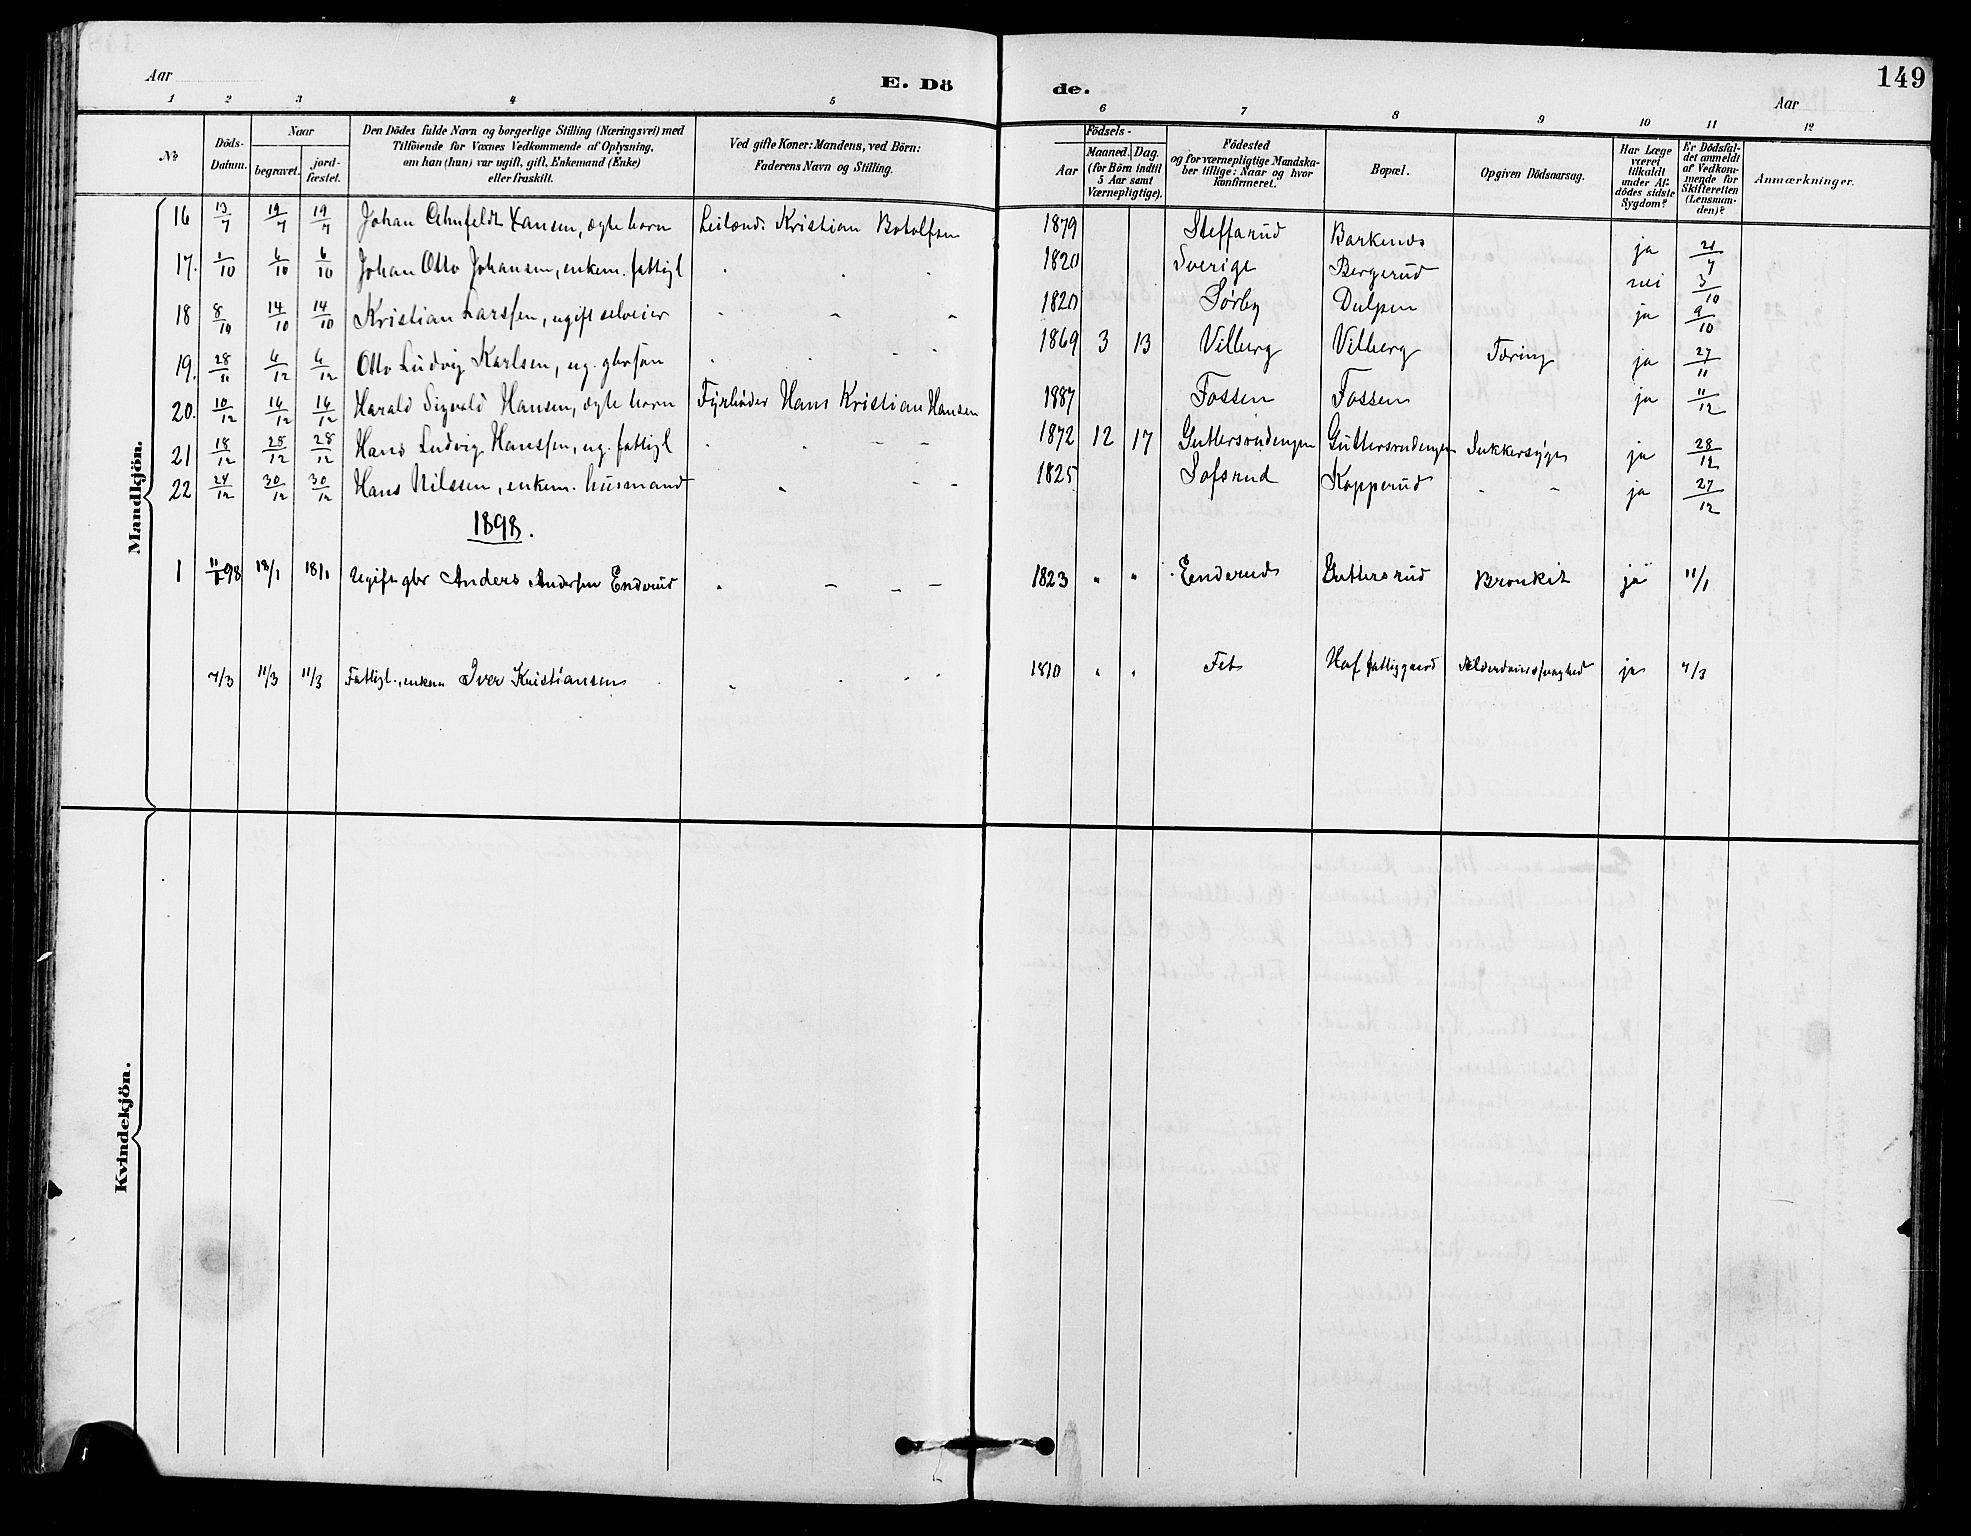 149
Aar
E. Dö
de.
Aar
1 2 3 4 5 6 7 8 9 10 11 12
No
Döds-Datum.
Naar
begravet.
jord-fæstet.
Den Dödes fulde Navn og borgerlige Stilling (Næringsvei) med
Tilföiende for Voxnes Vedkommende af Oplysning,
om han (hun) var ugift, gift, Enkemand (Enke)
eller fraskilt.
Ved gifte Koner: Mandens, ved Börn:
Faderens Navn og Stilling.
Födsels-
Aar
Maaned. Dag.
(for Börn indtil
5 Aar samt
Værnepligtige).
Födested
og for værnepligtige Mandska-
ber tillige: Naar og hvor
konfirmeret.
Bopæl.
Opgiven Dödsaarsag.
Har Læge
været
tilkaldt
under Af-
dödes sidste
Sygdom?
Er Dödsfal-
det anmeldt
af Vedkom-
mende for
Skifteretten
(Lensman-
den)?
Anmærkninger.
Mandkjön.
16 13/7 19/7 19/7 Johan Hansen, ægte barn Leilænd: Kristian Botolfsen 1879 Steffarud ja 21/7
17. 1/10 6/10 6/10 Johan Otto Johansen, enkem. fattigl 1820 Sverige Bergerud nei 3/10
18 8/10 14/10 14/10 Kristian Larssen, ugift selveier 1820 Sørby Dulpen ja 9/10
19. 28/11 6/12 6/12 Otto Ludvig Karlsen, ug. gbrsøn 1869 3 13 Vilberg Vilberg Tæring ja 27/11
20. 10/12 16/12 16/12 Harald Sigvald Hansen, ægte barn Fyrbøder Hans Kristian Hansen 1887 Fossen Fossen ja 11/12
21 18/12 28/12 28/12 Hans Ludvig Hanssen, ug. fattigl 1872 12 17 Guttersrudengen Guttersrudengen Sukkersyge ja 28/12
22 24/12 30/12 30/12 Hans Nilssen, enkem. husmand 1825 Sofsrud Kopperud ja 27/12
1898.
1 11/1 98 18/1 18/1 Ugift gbr Anders Andersen Enderud 1823 " " Enderud Guttersrud Bronkit ja 11/1
7/3 11/3 11/3 Fattigl., enkem Iver Kristiansen 1810 " " Fet Hof fattiggaard Alderdomssvaghed ja 7/3
Kvindekjön.